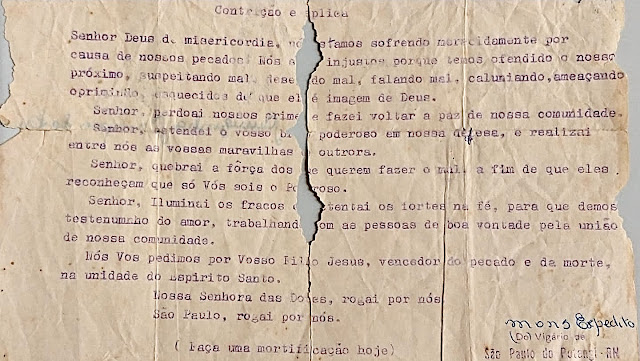 Contrição e súplica
Senhor Deus de misericordia, nós estamos sofrendo merecidamente por
causa de nossos pecados. Nós injustos porque temos ofendido o nosso
próximo, suspeitando mal, mal, falando mal, caluniando, ameaçando
oprimindo, esquecidos de que ele é imagem de Deus.
Senhor, perdoai nossos crimes e fazei voltar a paz de nossa comunidade.
Senhor, estendei o Vosso poderoso em nossa defesa, e realizai
entre nós as vossas maravilhas outrora.
Senhor, quebrai a fôrça dos que querem fazer o mal, a fim de que eles
reconheçam que só Vós sois o Poderoso.
Senhor, Iluminai os fracos e sustentai os fortes na fé, para que demos
testenumho do amor, trabalhando com as pessoas de boa vontade pela união
de nossa comunidade.
Nós Vos pedimos por Vosso Filho Jesus, vencedor do pecado e da morte,
na unidade do Espirito Santo.
Nossa Senhora das Dores, rogai por nós
São Paulo, rogai por nós.
( Faça uma mortificação hoje)
mons Expedito
(Do) Vigário de
São Paulo do Potengi - RN